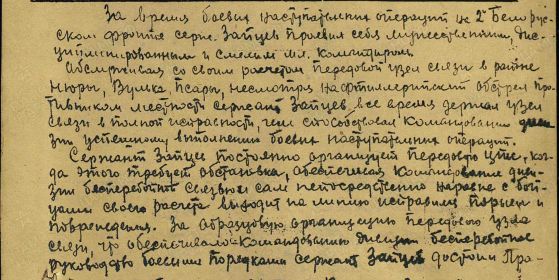 За время боевых наступательных операций на 2м Белорус-
ском фронте серж. Зайцев проявил себя мужественным дис-
циплинированным и смелым мл. командиром.
Обслуживая со своим расчетом передовой узел связи в районе
Нюры, Вулька, Псары, несмотря на артиллерийский обстрел про-
тивником местности сержант Зайцев все время держал узел
связи в полной исправности, чем способствовал командованию диви-
зии успешному выполнению боевых наступательных операций.
Сержант Зайцев постоянно организует передовой ког-
да этого требует обстановка, обеспечивая командование диви-
зии бесперебойной связью сам непосредственно наравне с бой-
цами своего расчета выходит на линию исправляя порывы и
повреждения. За образцовую организацию передового узла
связи, что обеспечивало командованию дивизии бесперебойное
руководство боевыми порядками сержант Зайцев достоин Пра-